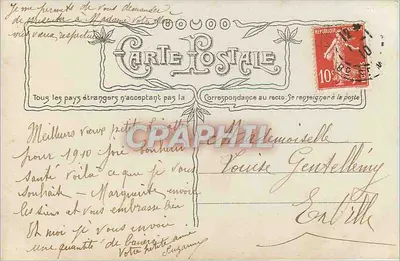 Je me permets de vous demander
de présenter à Madame votre
mes vœux respectueux
CARTE POSTALE
Tous les pays étrangers n'acceptant pas la Correspondance au recto, se renseigner à la poste
10
Meilleurs vœux petite
pour 1910 Joie bonheur
santé voilà ce que je vous
souhaite - Marguerite envoie
les siens et vous embrasse bien
Et moi je vous envoie
une quantité de baisers
Votre petite amie
Suzanne
Mademoiselle
Louise Gentellémy
En Ville
CPAPHIL